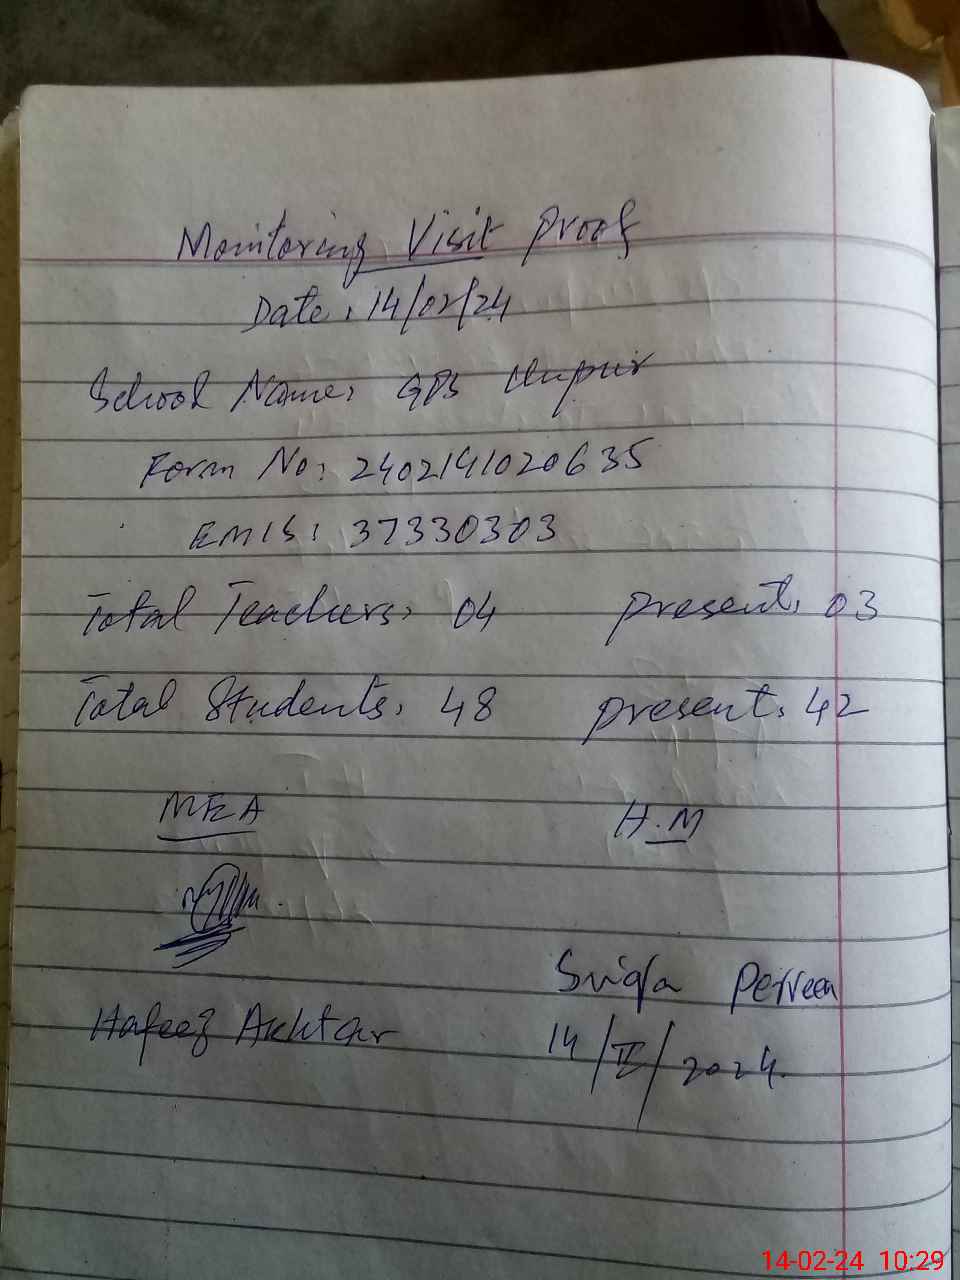 Monitoring Visit Proof
Date: 14/02/24
School Name: GPS
Form No: 2402141020635
EMIS: 37330303
Total Teachers: 04 present: 03
Total Students: 48 present: 42
MEA H.M
Perveen
Hafeez Akhtar 14/II/2024.
14-02-24 10:29